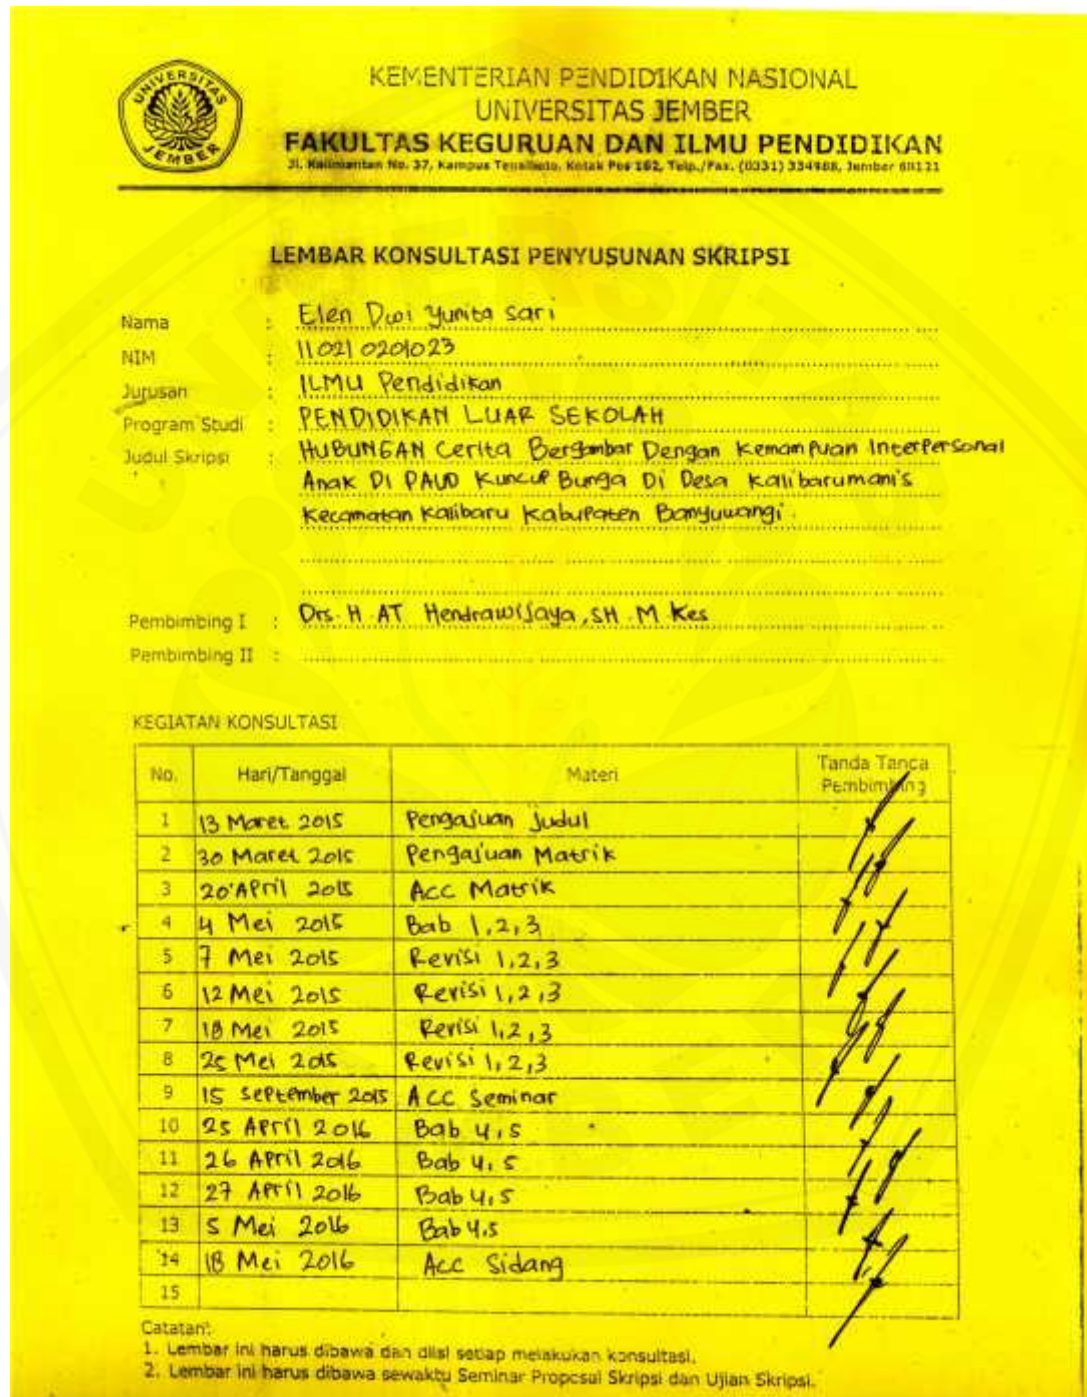 UNIVERSITAS JEMBER
KEMENTERIAN PENDIDIKAN NASIONAL
UNIVERSITAS JEMBER
FAKULTAS KEGURUAN DAN ILMU PENDIDIKAN
Jl. Kalimantan No. 37, Kampus Tegalboto, Kotak Pos 162, Telp./Fax. (0331) 334988, Jember 68121
LEMBAR KONSULTASI PENYUSUNAN SKRIPSI
Nama : Elen Dwi Yunita Sari
NIM : 110210201023
Jurusan : ILMU Pendidikan
Program Studi : PENDIDIKAN LUAR SEKOLAH
Judul Skripsi : HUBUNGAN Cerita Bergambar Dengan Kemampuan Interpersonal
Anak Di PAUD Kuncup Bunga Di Desa Kalibarumanis
Kecamatan Kalibaru Kabupaten Banyuwangi.
Pembimbing I : Drs. H. AT Hendrawijaya, SH. M. Kes
Pembimbing II :
KEGIATAN KONSULTASI
No. Hari/Tanggal Materi Tanda Tanca Pembimbing
1 13 Maret 2015 Pengajuan Judul
2 30 Maret 2015 Pengajuan Matrik
3 20 April 2015 Acc Matrik
4 4 Mei 2015 Bab 1,2,3
5 7 Mei 2015 Revisi 1,2,3
6 12 Mei 2015 Revisi 1,2,3
7 18 Mei 2015 Revisi 1,2,3
8 25 Mei 2015 Revisi 1,2,3
9 15 September 2015 ACC Seminar
10 25 April 2016 Bab 4,5
11 26 April 2016 Bab 4,5
12 27 April 2016 Bab 4,5
13 5 Mei 2016 Bab 4,5
14 18 Mei 2016 Acc Sidang
15
Catatan:
1. Lembar ini harus dibawa dan diisi setiap melakukan konsultasi.
2. Lembar ini harus dibawa sewaktu Seminar Proposal Skripsi dan Ujian Skripsi.